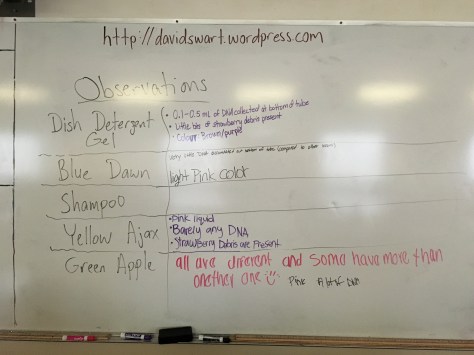 http://davidswart.wordpress.com
Observations
Dish Detergent Gel
• 0.1-0.5 mL of DNA collected at bottom of tube
• Little bits of strawberry debris present
• Colour Brown/purple
Blue Dawn
very little DNA at bottom of tube compared to other
light Pink color
Shampoo
Yellow Ajax
• Pink liquid
• Barely any DNA
• Strawberry Debris are Present
Green Apple
all are different and some have more than
another one
Pink A bit of DNA